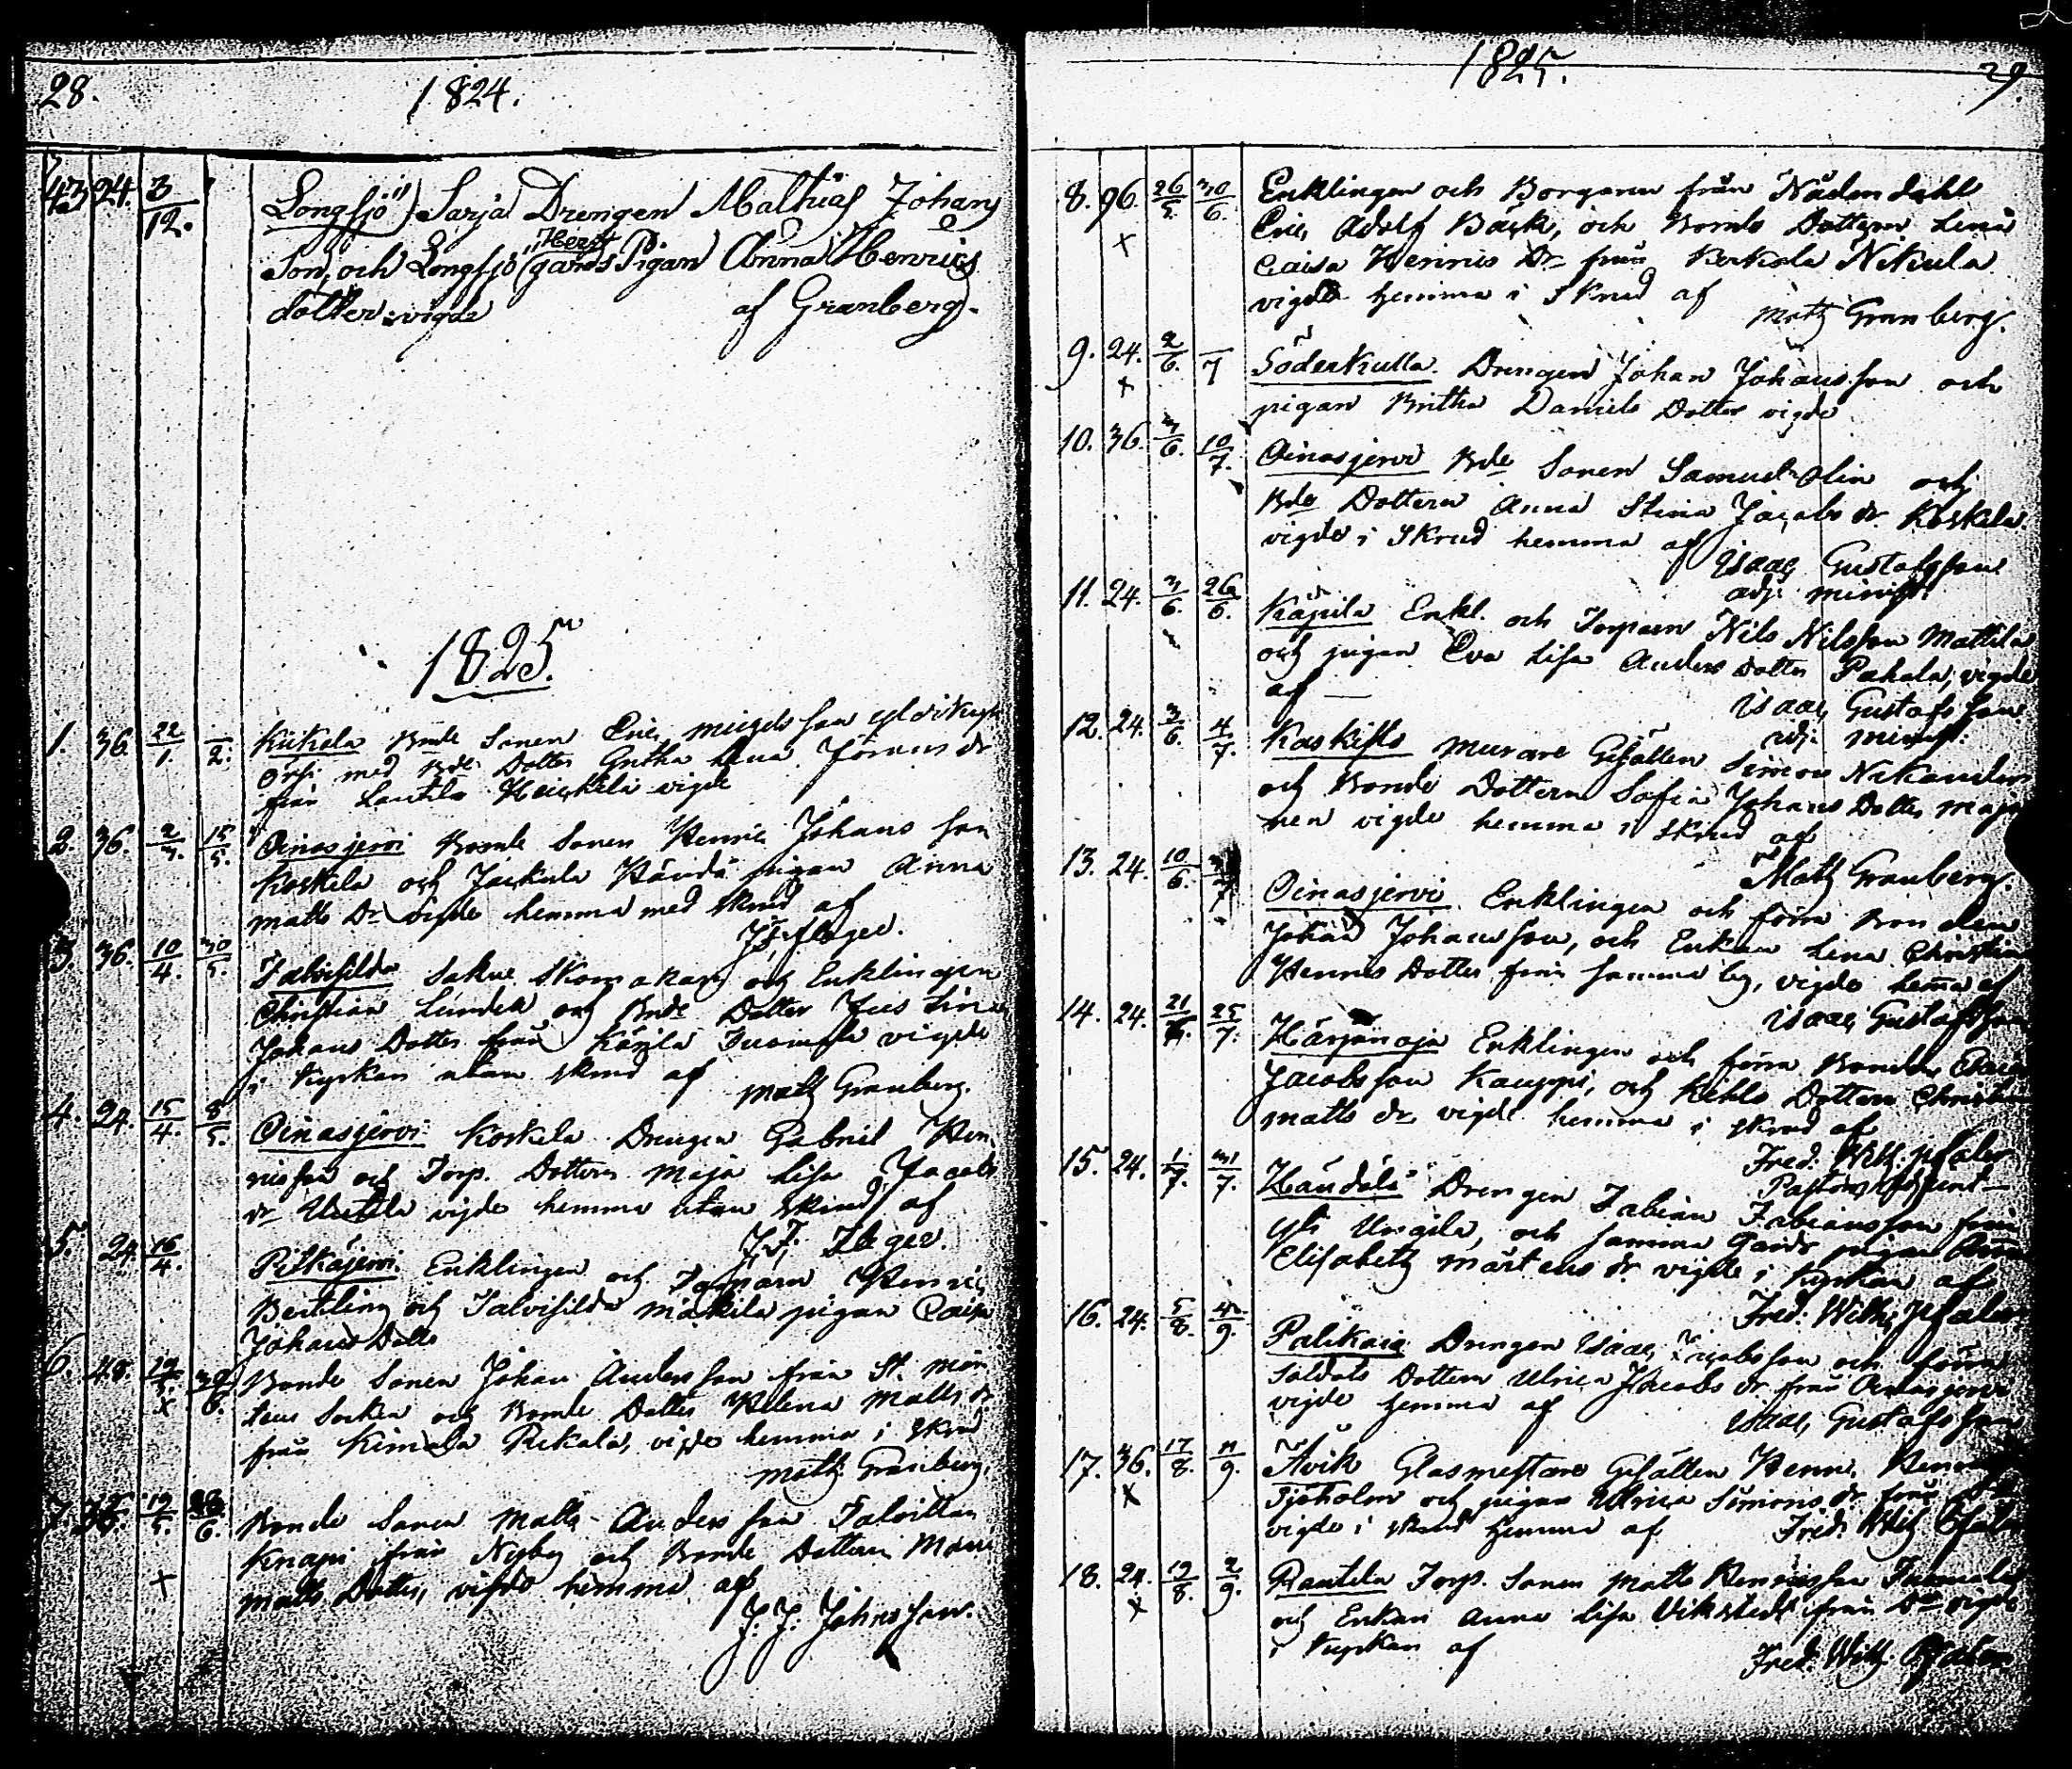 28.
1824.
43 24. 3/12. Longsjö Sarja Drengen Mathias Johans
Son, och Longsjö Herrgårds Pigan Anna Henrics
dotter vigde af Granberg.
1825.
1. 36. 22/1. –/2. Kiikala Bonde Sonen Eric Michels son
med Bde Dotter Gretha Lena Jörans dr
från Lautela Heickilä vigde
2. 36. 2/3. 15/5. Oinasjervi Bonde Sonen Henric Johans son
Koskela och Jackula Händä pigan Anna
Matts Dr vigde hemma med skrud af
3. 36. 10/4. 30/5. Talvisilda Sokne Skomakare och Enklingen
Christian Lindell och Bnde Dotter Justina
Johans Dotter från Kärilä vigde
i Kyrkan utan skrud af Matth Granberg.
4. 24. 15/4. 8/5. Oinasjärvi Koskela Drengen Gabriel Hen-
ricsson och Torp. Dottern Maja Lisa Jacobs
dr vigde hemma utan skrud af
5. 24. 16/4. Pitkäjervi Enklingen och Torparn Henric
och Talvisilda Mäkilä pigan Caisa
Johans Dotter
6. 48. Bonde Sonen Johan Andersson från St. Mår-
tens Socken och Bonde Dotter Helena Matts dr
från Kimala Rekala, vigde hemma i skrud
Matth Granberg.
7. 19/5. Bonde Sonen Matts Andersson
Knapi från Nyby och Bonde Dottern Maria
Matts Dotter, vigde hemma af
J. J. Johnsson.
1825. 29.
8. 96. 26/5. 30/6. Enklingen och Borgaren från Nådendahl
Eric Adolf Back, och Bonde Dottern Lena
Caisa Henrics Dr från Kerkola Nikula
vigde hemma i Skrud af Matth Granberg.
9. 24. 2/6. –/7 Söderkulla. Drengen Johan Johansson och
pigan Britha Daniels Dotter vigde
10. 36. 3/6. 10/7. Oinasjervi Bde Sonen Samuel Olin och
Bde Dottern Anna Stina Jacobs dr Koskela
vigde i Skrud hemma af Isaac Gustafsson
adj. minist.
11. 24. 3/6. 26/6. Käpilä Enkl. och Torparn Nils Nilsson Mattila
och pigan Eva Lisa Anders Dotter Pahala, vigde
af – Isaac Gustafsson
adj. minist.
12. 24. 3/6. 4/7. Kaskisto Murare Gesällen Simon Nikander
och Bonde Dottern Sofia Johans Dotter
vigde hemma i skrud af
Matth Granberg.
13. 24. 10/6. Oinasjervi Enklingen och förra Bonden
Johan Johansson, och Enkan Lena Christina
Henrics Dotter från samma by, vigde hemma af
Isaac Gustafsson
14. 24. Härjänoja Enklingen och förra Bonden
Jacobsson Kauppi, och Dottern Christina
Matts dr vigde hemma i skrud af
Fred. Wilh. Pfaler
15. 24. 1/7. 31/7. Händälä Drengen Fabian Fabiansson från
och samma Gårds pigan Anna
Elisabeth Mårtens dr vigde i Kyrkan af
Fred. Wilh. Pfaler
16. 24. 5/8. 4/9. Palikais Drengen Isaac Jacobsson och förra
Soldats Dottern Ulrica Jacobs dr från Oinasjervi
vigde hemma af Isaac Gustafsson
17. 36. 17/8. 11/9. Åvik Glasmestare Gesällen Henric
Sjöholm och pigan Ulrica Simons dr från
vigde i skrud hemma af Fred. Wilh. Pfaler
18. 24. 19/8. 2/9. Rautela Torp. Sonen Matts Henricsson
och Enkan Anna Lisa Vikstedt från vigde
i Kyrkan af Fred. Wilh. Pfaler